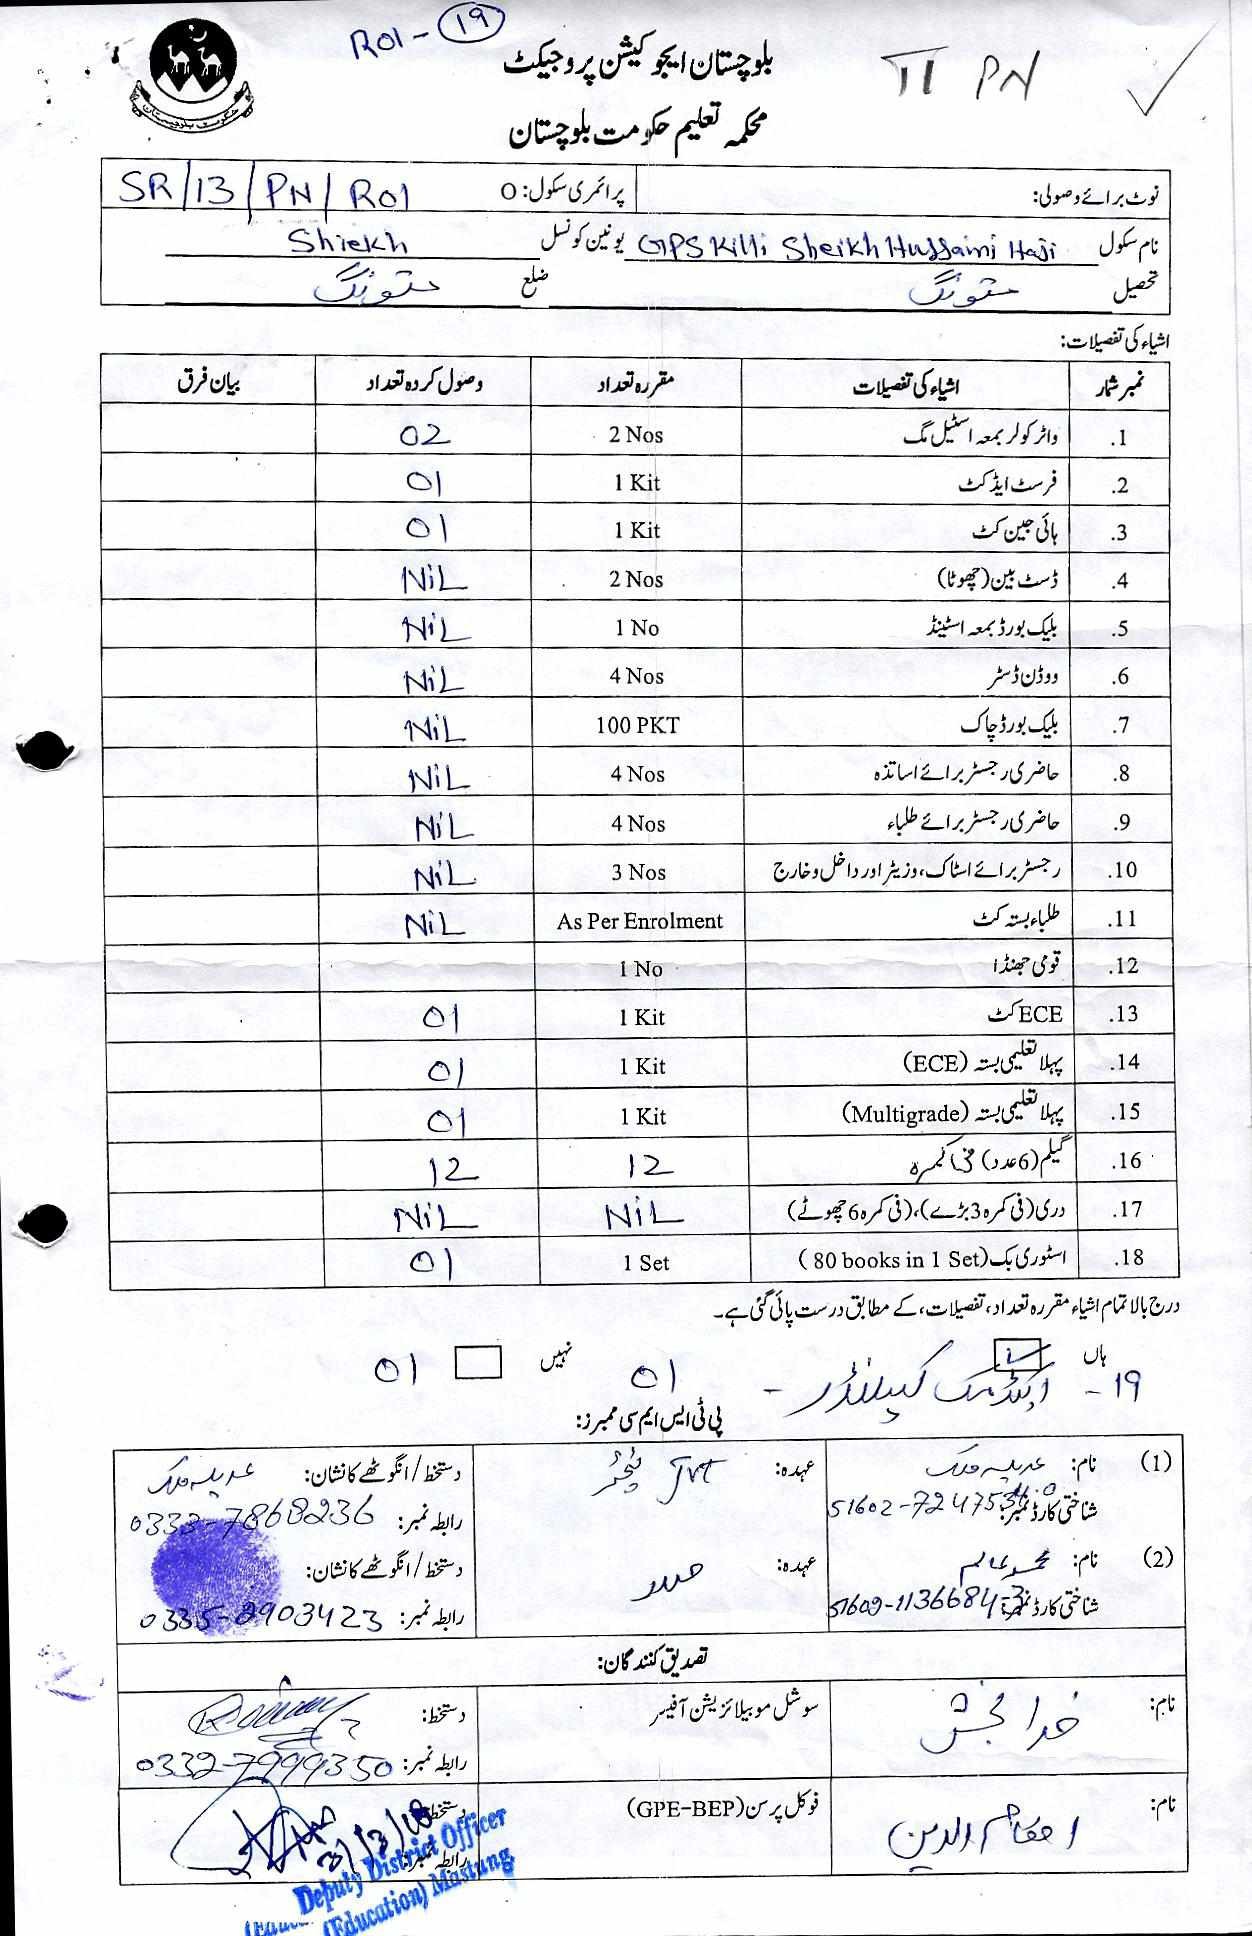 R01 - 19
TI PN
حکومت بلوچستان
بلوچستان ایجوکیشن پروجیکٹ
محکمہ تعلیم حکومت بلوچستان
نوٹ برائے وصولی: پرائمری سکول: O SR/13/PN/R01
نام سکول GPS Killi Sheikh Hussaini Haji یونین کونسل Shiekh
تحصیل مستونگ ضلع مستونگ
اشیاء کی تفصیلات:
نمبر شمار اشیاء کی تفصیلات مقررہ تعداد وصول کردہ تعداد بیان فرق
.1 واٹر کولر بمعہ اسٹیل مگ 2 Nos 02
.2 فرسٹ ایڈ کٹ 1 Kit 01
.3 ہائی جین کٹ 1 Kit 01
.4 ڈسٹ بین (چھوٹا) 2 Nos NiL
.5 بلیک بورڈ بمعہ اسٹینڈ 1 No NiL
.6 ووڈن ڈسٹر 4 Nos NiL
.7 بلیک بورڈ چاک 100 PKT NiL
.8 حاضری رجسٹر برائے اساتذہ 4 Nos NiL
.9 حاضری رجسٹر برائے طلباء 4 Nos NiL
.10 رجسٹر برائے اسٹاک، وزیٹر اور داخل و خارج 3 Nos NiL
.11 طلباء بستہ کٹ As Per Enrolment NiL
.12 قومی جھنڈا 1 No
.13 ECE کٹ 1 Kit 01
.14 پہلا تعلیمی بستہ (ECE) 1 Kit 01
.15 پہلا تعلیمی بستہ (Multigrade) 1 Kit 01
.16 گیلم (6 عدد) فی کمرہ 12 12
.17 دری (فی کمرہ 3 بڑے)، (فی کمرہ 6 چھوٹے) NiL NiL
.18 اسٹوری بک (80 books in 1 Set) 1 Set 01
درج بالا تمام اشیاء مقررہ تعداد، تفصیلات، کے مطابق درست پائی گئی ہے۔
ہاں نہیں
19 - اکیڈمک کیلنڈر - 01 01
پی ٹی ایس ایم سی ممبرز:
(1) نام: عدیلہ ملک عہدہ: Jvt ٹیچر دستخط / انگوٹھے کا نشان: عدیلہ ملک
شناختی کارڈ نمبر: رابطہ نمبر: 0333-7868236
(2) نام: محمد عالم عہدہ: صدر دستخط / انگوٹھے کا نشان:
شناختی کارڈ نمبر: رابطہ نمبر: 0335-2903423
تصدیق کنندگان:
نام: خدا بخش سوشل موبیلائزیشن آفیسر دستخط:
رابطہ نمبر: 0332-7999350
نام: فوکل پرسن (GPE-BEP) دستخط:
رابطہ نمبر:
Deputy District Officer
(Education) Mastung